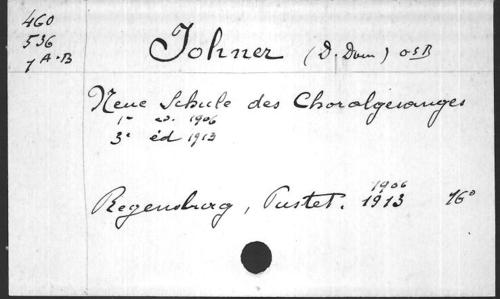 460
536
7 A-B
Johner (D. Dom) OSB
Neue Schule des Choralgesanges
1e ed. 1906
3e éd 1913
1906
Regensburg, Pustet. 1913 16°